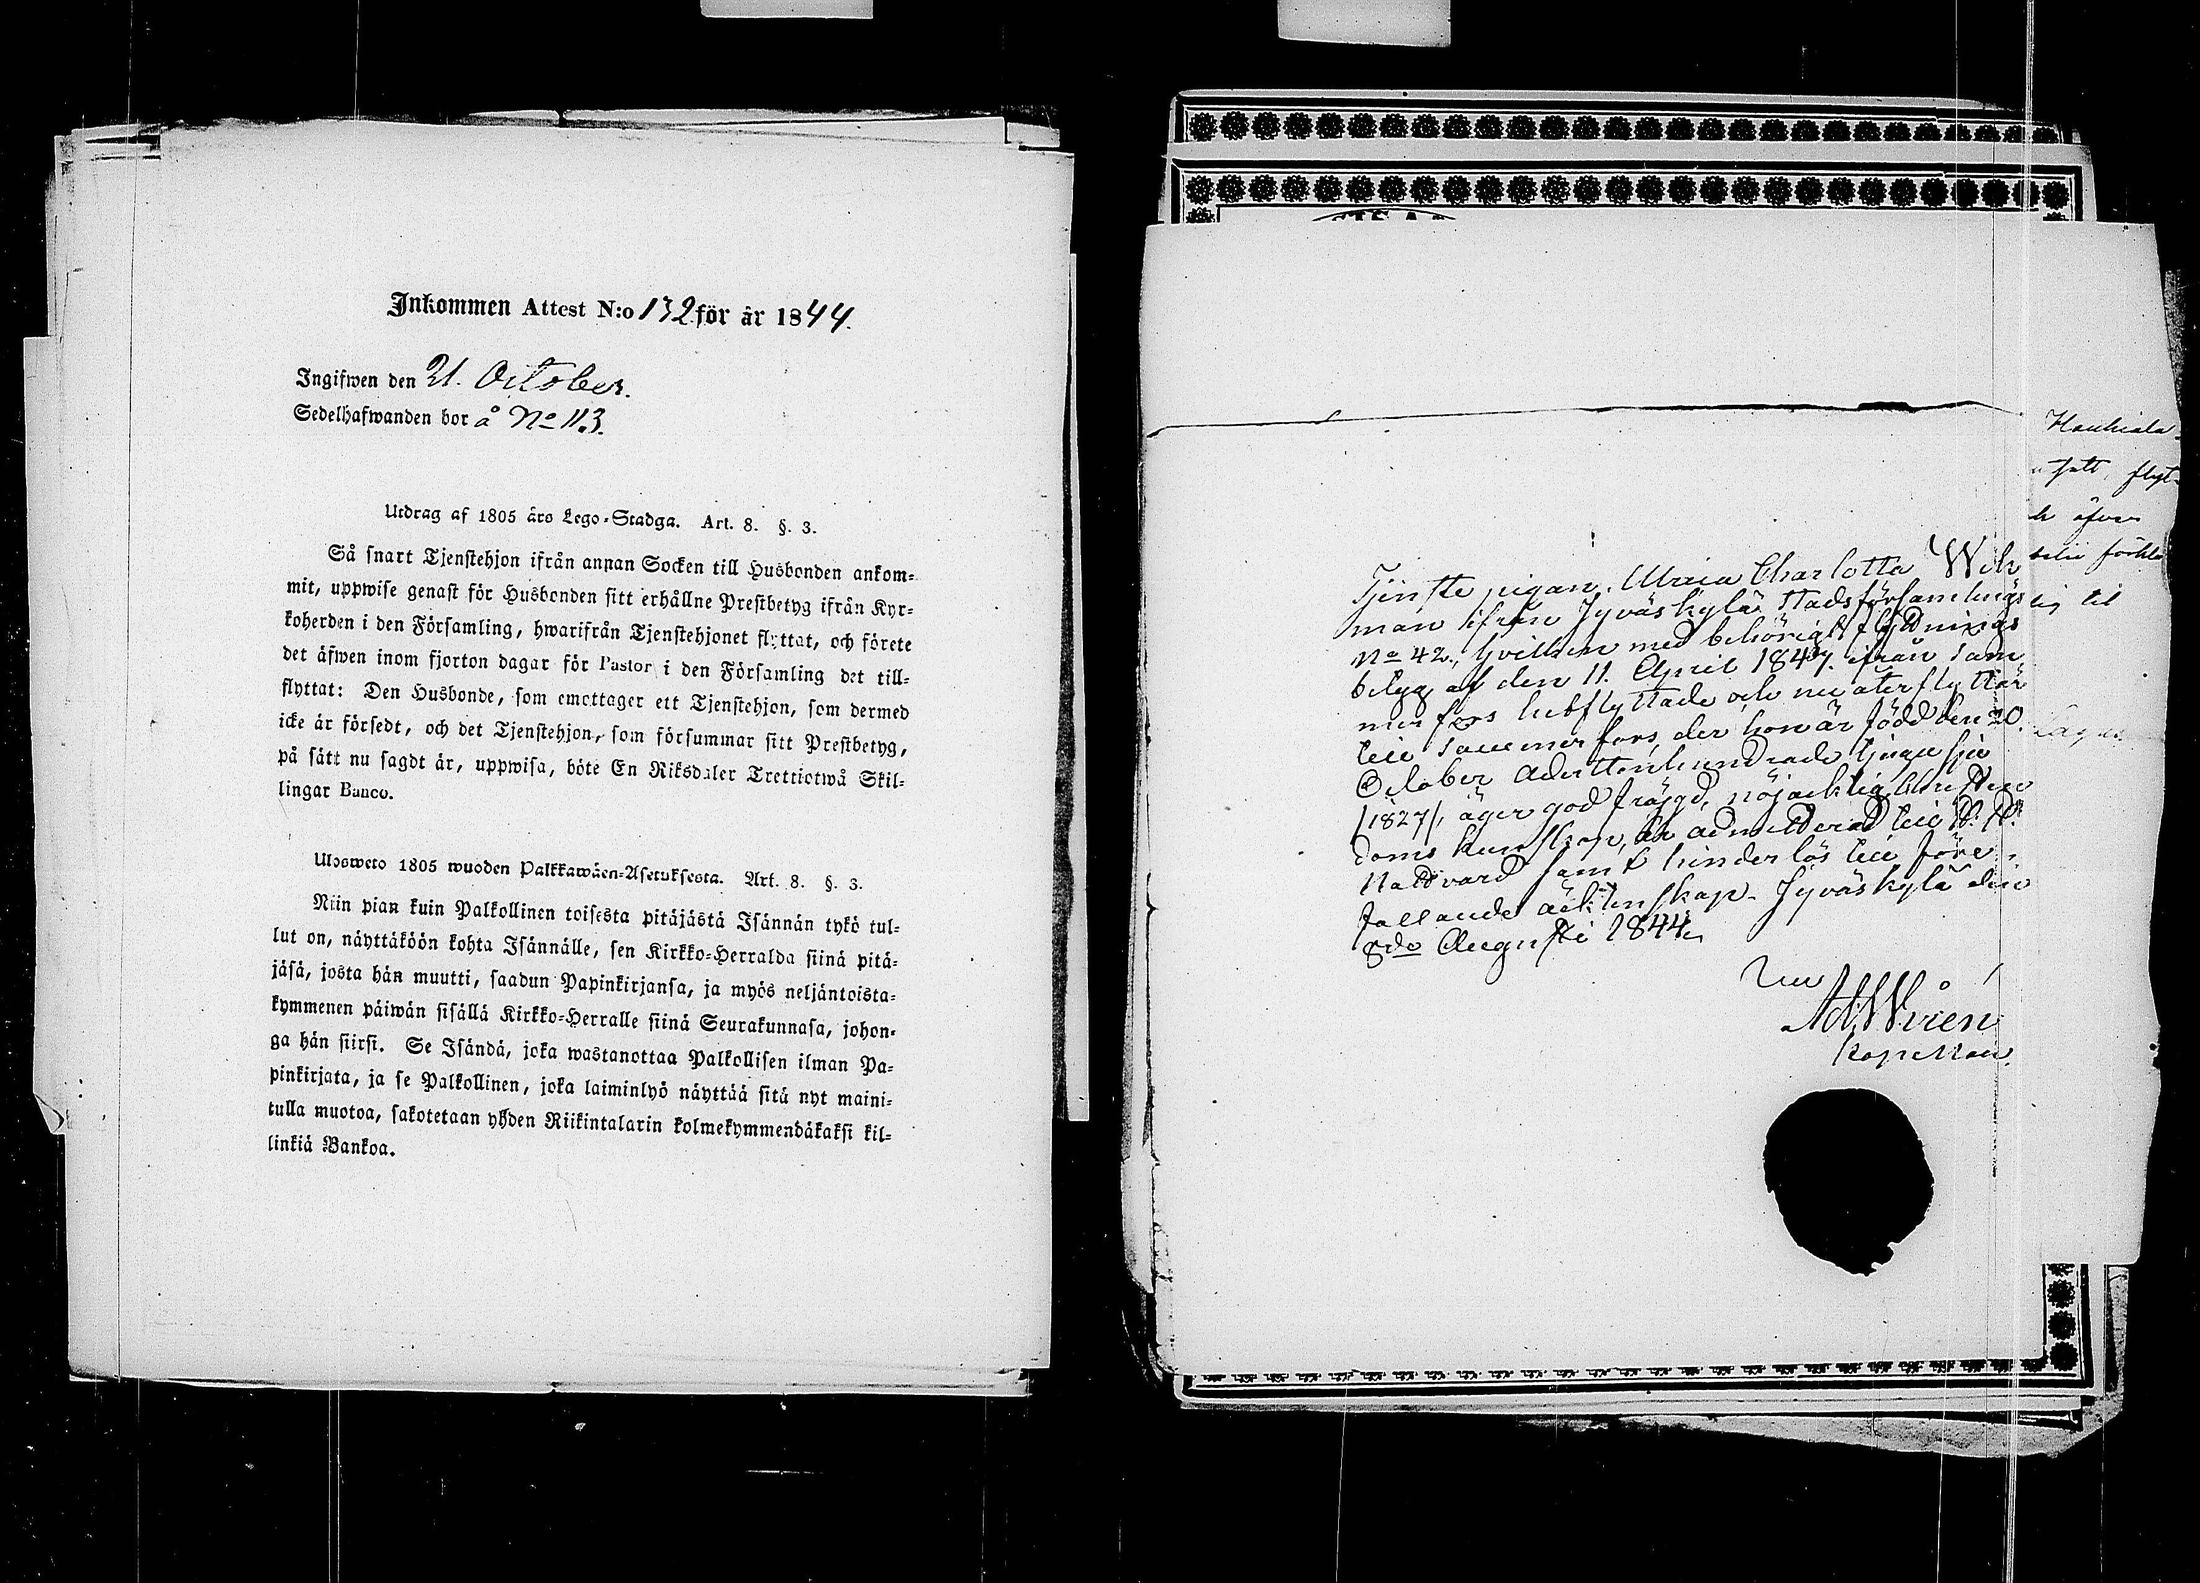 Inkommen Attest N:o 132 för år 1844.
Ingifwen den 21. October.
Sedelhafwanden bor å No 113.
Utdrag af 1805 års Lego-Stadga. Art. 8. §. 3.
Så snart Tjenstehjon ifrån annan Socken till Husbonden ankom-
mit, uppwise genast för Husbonden sitt erhållne Prestbetyg ifrån Kyr-
koherden i den Församling, hwarifrån Tjenstehjonet flyttat, och förete
det äfwen inom fjorton dagar för Pastor i den Församling det till-
flyttat: Den Husbonde, som emottager ett Tjenstehjon, som dermed
icke är försedt, och det Tjenstehjon, som försummar sitt Prestbetyg,
på sätt nu sagdt är, uppwisa, böte En Riksdaler Trettiotwå Skil-
lingar Banco.
Ulosweto 1805 wuoden Palkkawäen-Asetuksesta. Art. 8. §. 3.
Niin pian kuin Palkollinen toisesta pitäjästä Isännän tykö tul-
lut on, näyttäköön kohta Isännälle, sen Kirkko-Herralda siinä pitä-
jäsä, josta hän muutti, saadun Papinkirjansa, ja myös neljäntoista-
kymmenen päiwän sisällä Kirkko-Herralle siinä Seurakunnasa, johon-
ga hän siirsi. Se Isändä, joka wastanottaa Palkollisen ilman Pa-
pinkirjata, ja se Palkollinen, joka laiminlyö näyttää sitä nyt maini-
tulla muotoa, sakotetaan yhden Riikintalarin kolmekymmendäkaksi kil-
linkiä Bankoa.
Tjenste pigan, Maria Charlotta Wik
man ifrån Jyväskylä Stadsförsamlings
No 42., hvilken med behörigt flyttnings
betyg af den 11. April 1844. ifrån Tam
merfors hitflyttade och nu återflyttar
till Tammerfors, der hon är född den 20
October Adertonhundrade tjugu sju
/1827/, äger god fräjgd, nöjaktig Christen
doms kunskap, är admitterad till H. H.
Nattvard samt hinderlös till före-
fallande äktenskap. Jyväskylä den
8de Augusti 1844.
Ad. Wirén
Kapellan.
flyt-
öfver
lig til